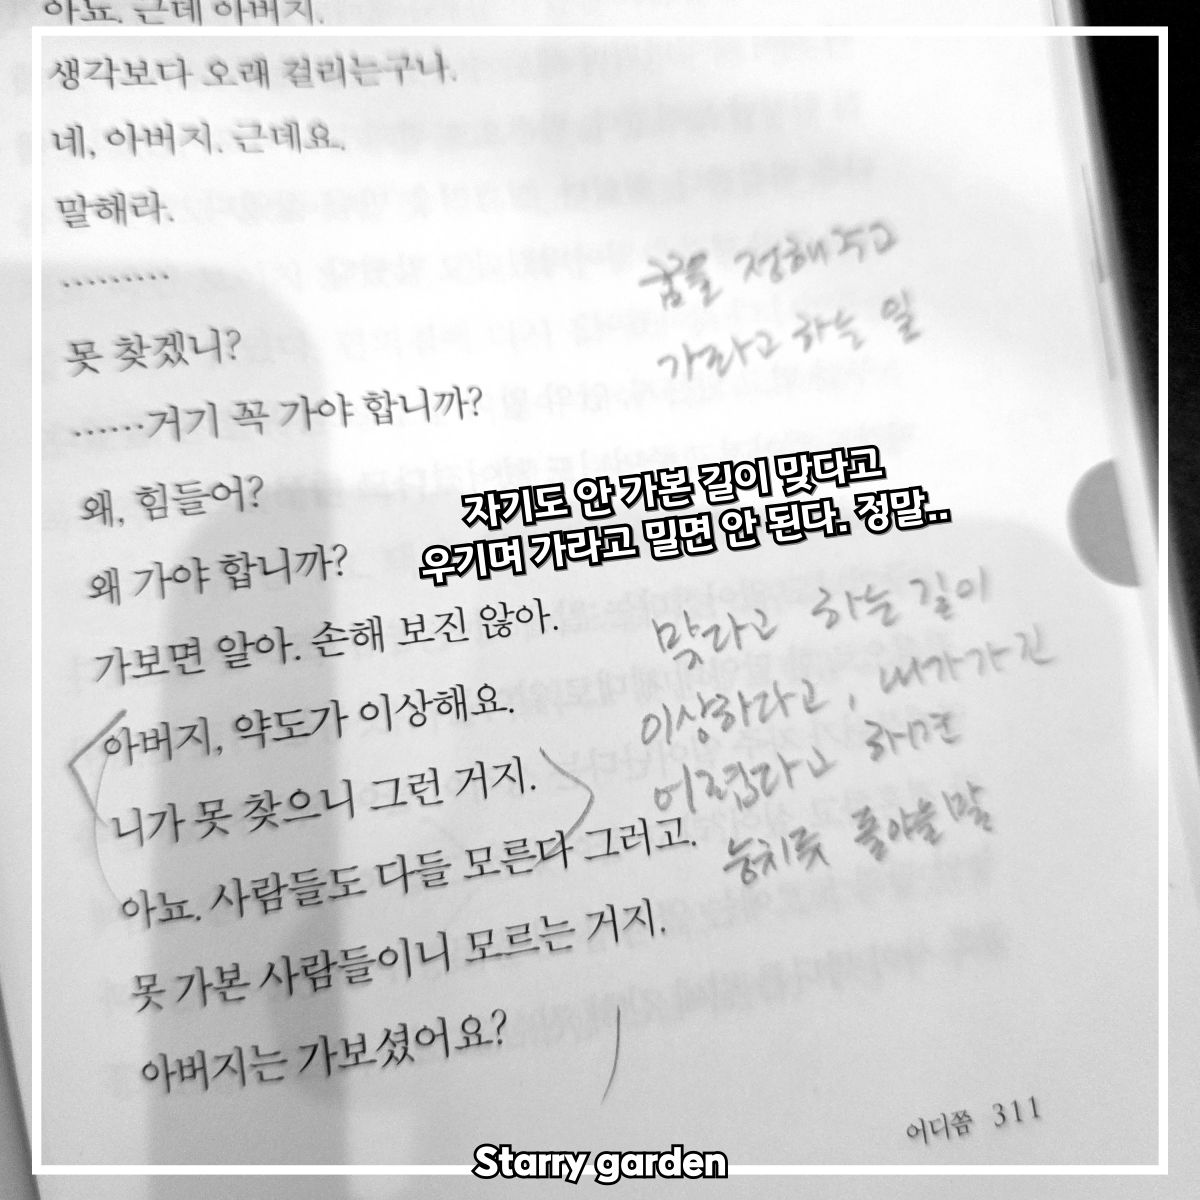 아뇨. 근데 아버지.
생각보다 오래 걸리는구나.
네, 아버지. 근데요.
말해라.
………
못 찾겠니?
……거기 꼭 가야 합니까?
왜, 힘들어?
왜 가야 합니까?
가보면 알아. 손해 보진 않아.
아버지, 약도가 이상해요.
니가 못 찾으니 그런 거지.
아뇨. 사람들도 다들 모른다 그러고.
못 가본 사람들이니 모르는 거지.
아버지는 가보셨어요?
꿈을 정해주고
가라고 하는 일
자기도 안 가본 길이 맞다고
우기며 가라고 밀면 안 된다. 정말..
맞다고 하는 길이
이상하다고, 내가 가긴
어렵다고 하면
눙치듯 풀어놓을 말
어디쯤 311
Starry garden